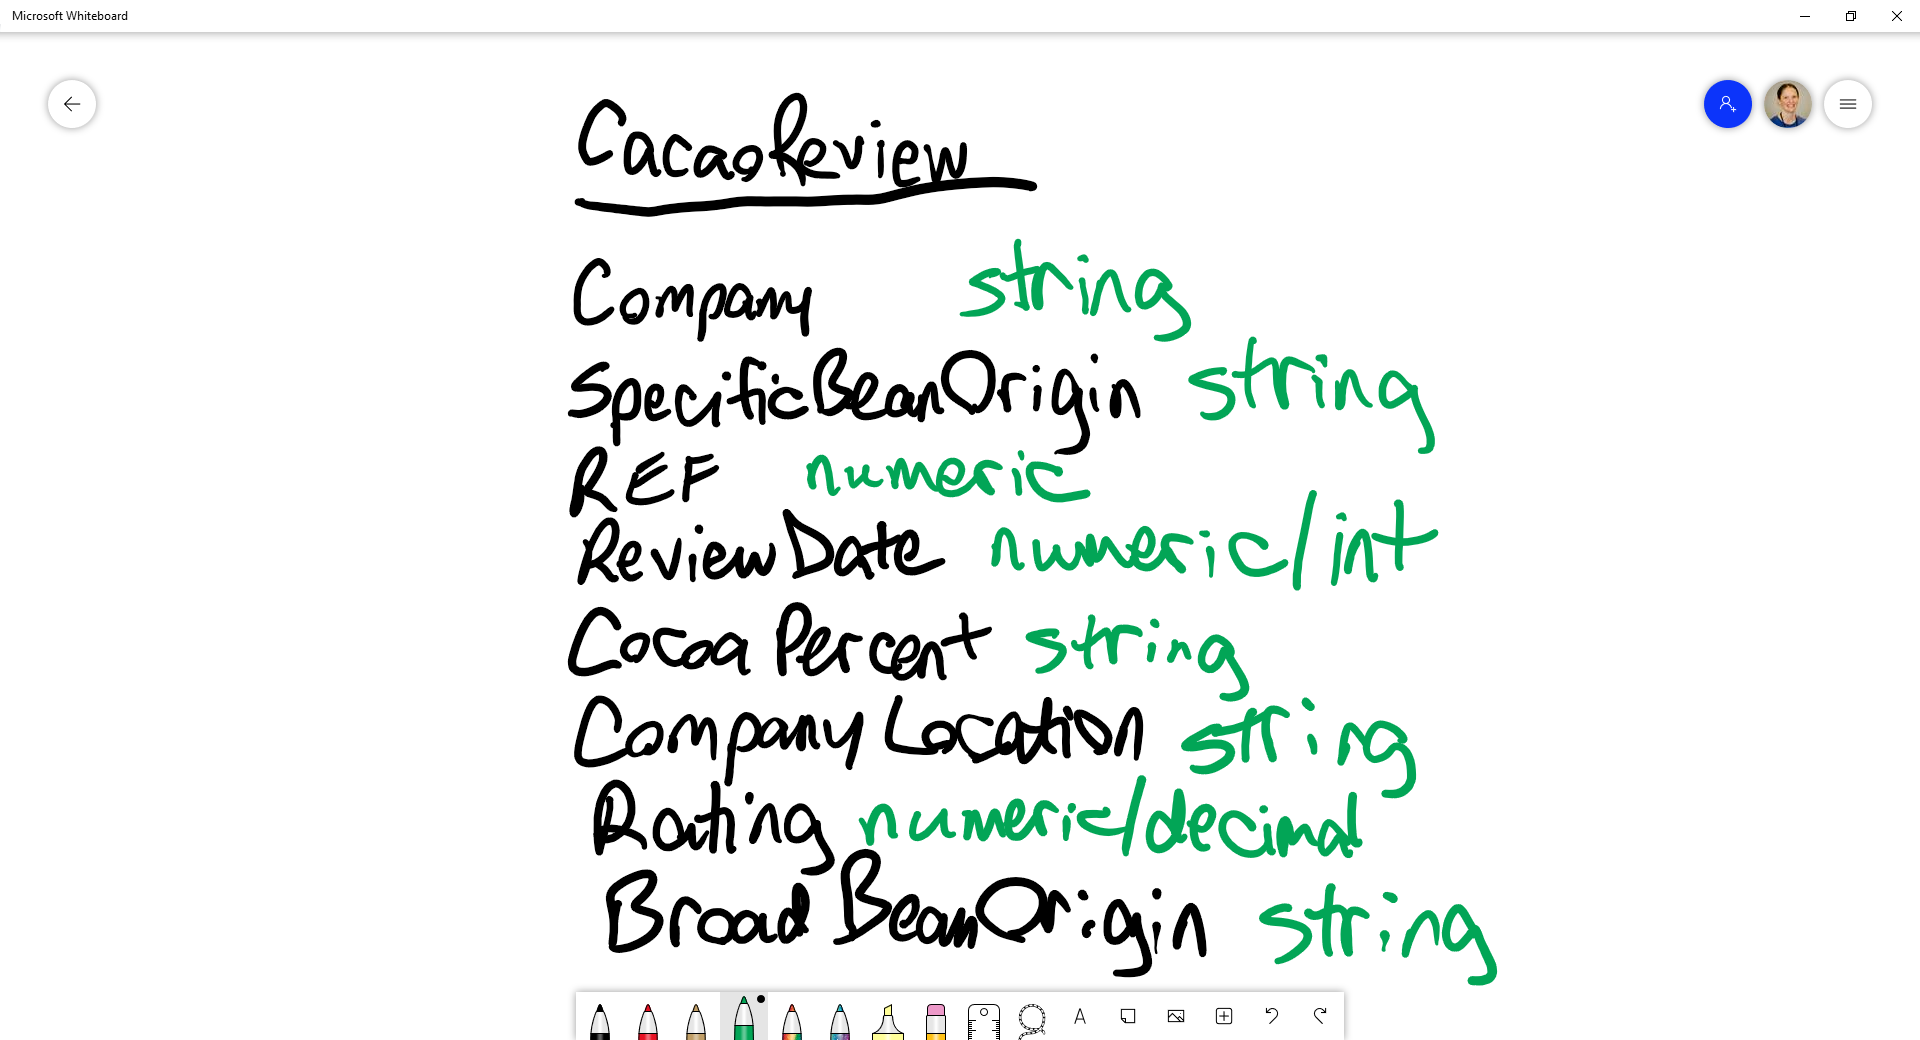 Microsoft Whiteboard
CacaoReview
Company string
SpecificBeanOrigin string
REF numeric
ReviewDate numeric/int
CocoaPercent string
CompanyLocation string
Rating numeric/decimal
BroadBeanOrigin string
A